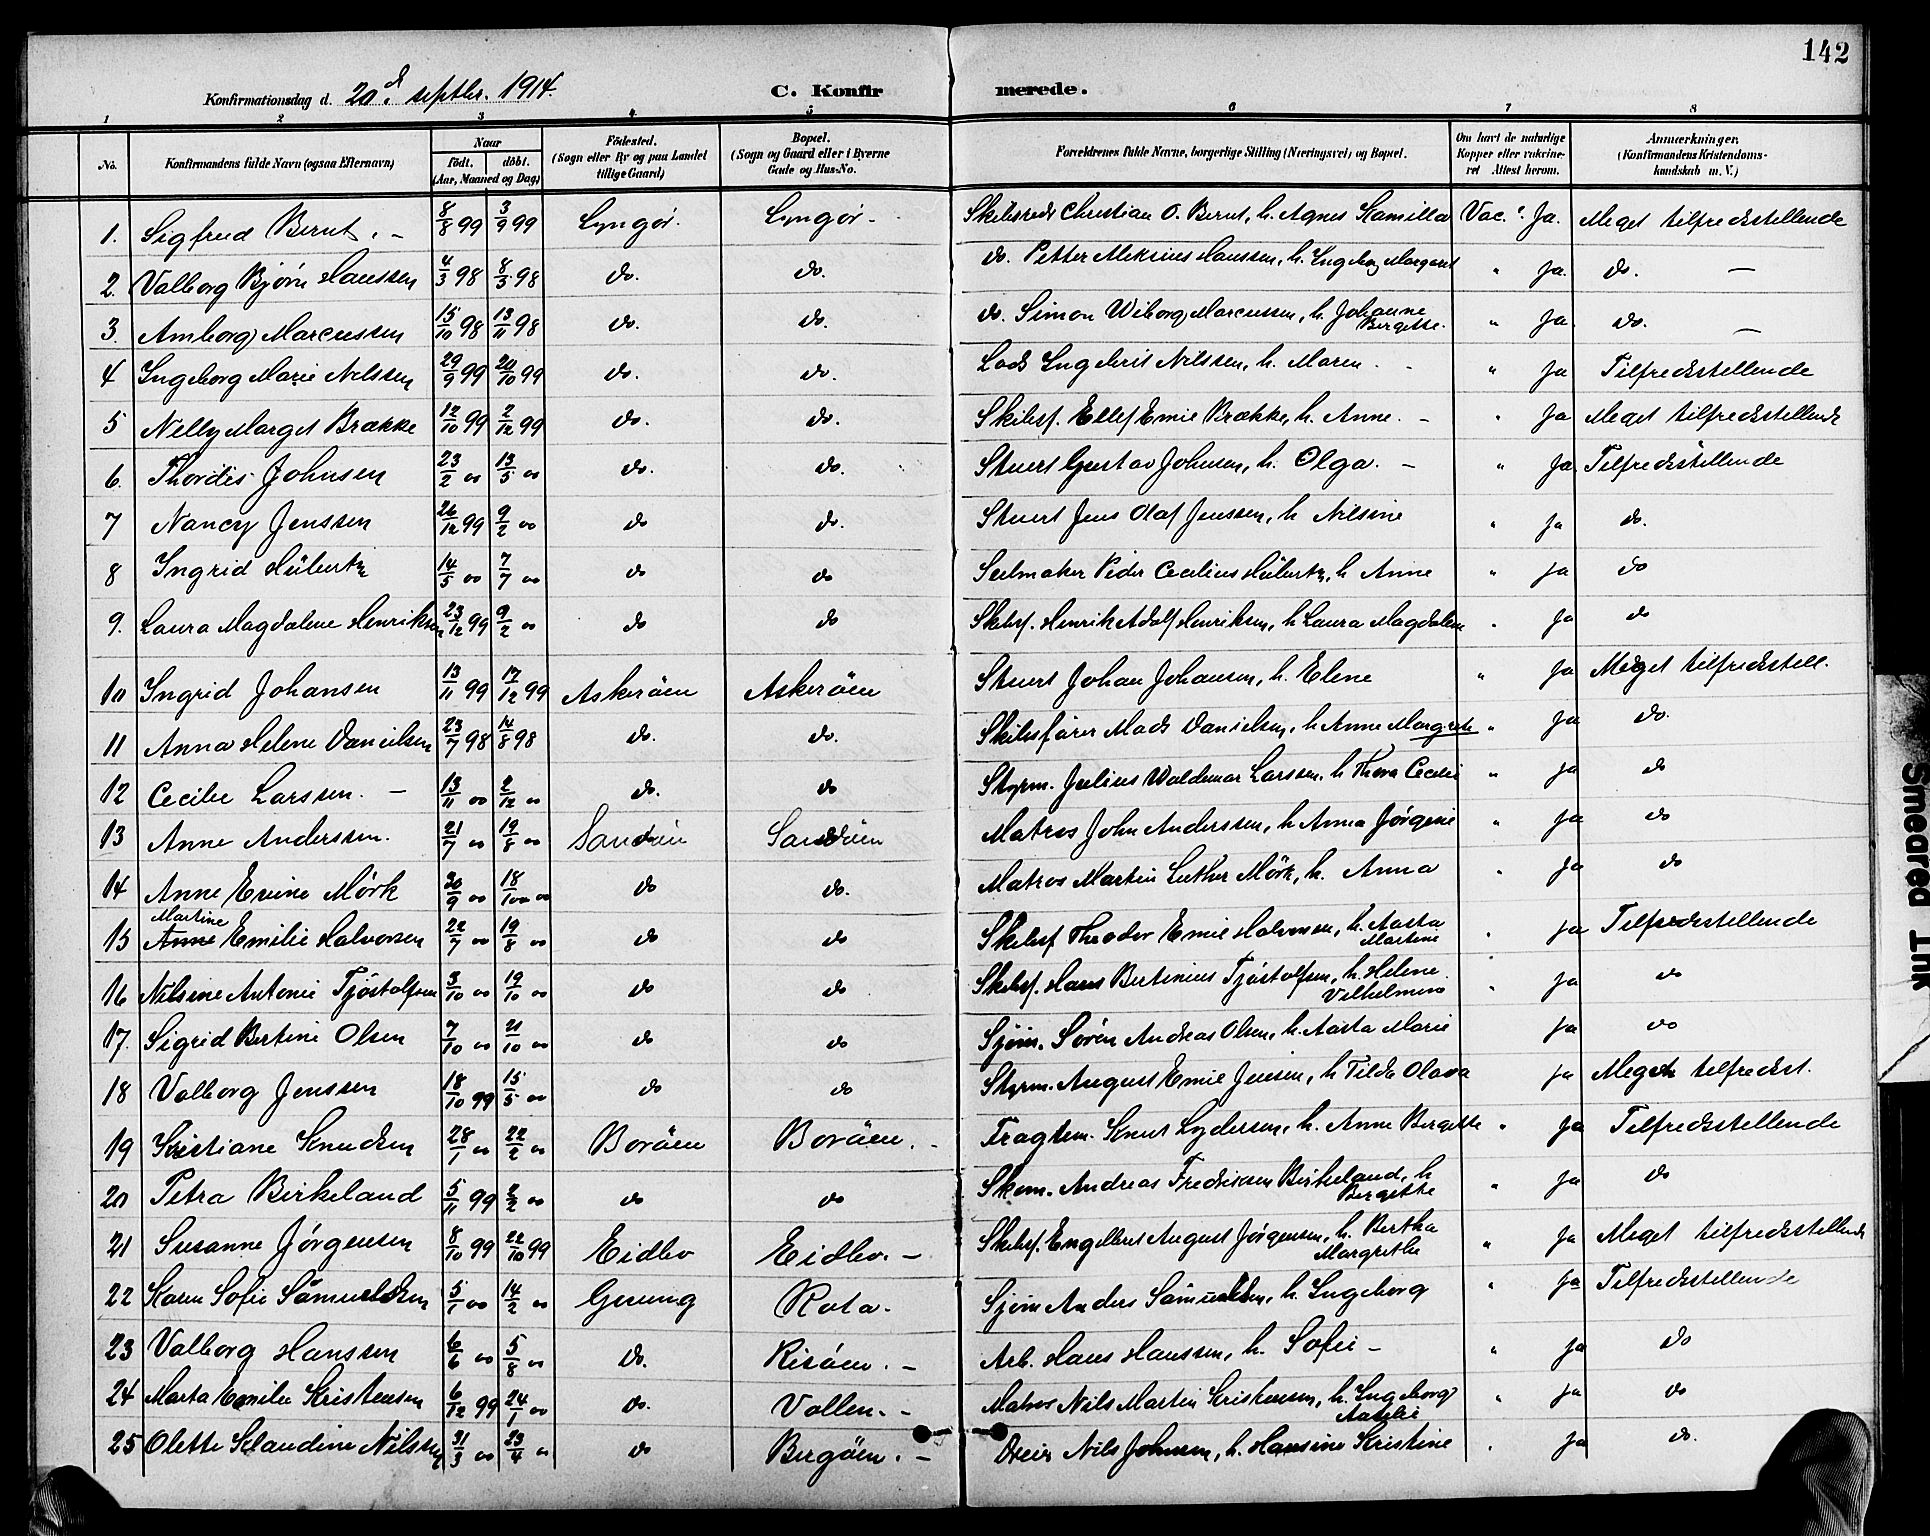 142
Konfirmationsdag d. 20d septbr. 1914.
C. Konfirmerede.
1 2 3 4 5 6 7 8
No. Konfirmandens fulde Navn (ogsaa Efternavn) Naar født. døbt. (Aar, Maaned og Dag) Födested. (Sogn eller By og paa Landet tillige Gaard) Bopæl. (Sogn og Gaard eller i Byerne Gade og Hus-No. Forældrenes fulde Navne, borgerlige Stilling (Næringsvei) og Bopæl. Om havt de naturlige Kopper eller vakcineret Attest herom. Anmærkninger. (Konfirmandens Kristendomskundskab m. V.)
1. Sigfred Bernt. - 8/8 99 3/9 99 Lyngör. Lyngör- Skibsred. Christian O. Bernt, h. Agnes Kamilla Vac. Ja. Meget tilfredsstellende
2. Valborg Bjørn Hanssen 4/3 98 8/3 98 do. do. do. Petter Meksius Hanssen, h. Ingeborg Margaret " Ja. do. —
3. Amborg Marcussen 15/10 98 13/11 98 do. do. do. Simon Wiborg Marcussen, h. Johanne Bergitte. " Ja. do. —
4 Ingeborg Marie Nilssen 29/9 99 20/10 99 do. do. Lods Ingebrit Nilssen, h. Maren - " Ja Tilfredsstellende
5 Nelly Marget Brække 12/10 99 2/12 99 do. do. Skibsf. Ellef Emil Brække, h. Anne. - " Ja Meget tilfredsstellende
6. Thordis Johnsen 23/2 00 13/5 00 do. do. Stuert Gustav Johnsen, h. Olga. - " Ja. Tilfredsstellende
7 Nancy Jenssen 26/12 99 9/2 00 do do. Stuert Jens Olaf Jenssen, h Nilsine " Ja do.
8 Ingrid Hübertz 14/5 00 7/7 00 do do Seilmaker Peder Cecilius Hübertz, h Anne " Ja do
9. Laura Magdalene Henriksen 23/12 99 9/2 00 do do Skibsf. Henrik Adolf Henriksen, h Laura Magdalene " Ja do
10 Ingrid Johansen 13/11 99 17/12 99 Askeröen Askeröen Stuert Johan Johansen, h. Elene " Ja Meget tilfredsstell.
11 Anna Helene Danielsen 23/7 98 14/8 98 do. do. Skibsfører Mads Danielsen, h Anne Margrete " Ja do.
12 Cecilie Larssen. - 13/11 00 2/12 00 do. do Styrm. Julius Waldemar Larssen, h Thora Cecilie " Ja do
13 Anne Anderssen. 21/7 00 19/8 00 Sandöen Sandöen Matros John Anderssen, h Anna Jørgine " Ja do
14 Anne Evine Mörk 20/9 00 18/10 00 do do. Matros Martin Luther Mörk, h. Anna " Ja do
15 Anne Martine Emilie Halvorsen 22/7 00 19/8 00 do do Skibsf Theodor Emil Halvorsen, h. Aasta Martine " Ja Tilfredsstellende
16 Nilsine Antonie Tjöstolfsen 3/10 00 19/10 00 do do Skibsf. Hans Bertinius Tjöstolfsen, h. Helene Vilhelmine " Ja do
17. Sigrid Bertine Olsen 7/10 00 21/10 00 do do Sjöm. Sören Andreas Olsen, h. Aasta Marie Ja do
18 Valborg Jenssen 18/10 99 15/5 00 do do Styrm. August Emil Jensen, h Tilda Olava Ja Meget tilfredsst.
19 Kristiane Knudsen 28/1 00 22/2 00 Boröen Boröen. - Fragtem. Knut Lydersen, h. Anne Bergitte " Ja Tilfredsstellende
20 Petra Birkeland 5/11 99 2/2 00 do do Skom. Andreas Fredriksen Birkeland, h Bergitte " Ja do
21 Susanne Jörgensen 8/10 99 22/10 99 Eidbo Eidbo. - Skibsf. Engelbret August Jörgensen, h. Bertha Margrethe " Ja Meget tilfredsstellende
22 Karen Sofie Samuelsen 5/1 00 14/2 00 Gerung Rota. Sjöm Anders Samuelsen, h. Ingeborg " Ja Tilfredsstellende
23 Valborg Hanssen 6/6 00 5/8 00 do. Risöen. - Arb. Hans Hanssen, h. Sofie - " Ja do
24 Marta Emilie Kristensen 6/12 99 24/1 00 do. Vollen. - Matros Nils Martin Kristensen, h. Ingeborg " Ja do
25 Olette Klaudine Nilssen 31/3 00 23/4 00 do Bergöen. - Nils Johnsen, h. Hansine Kristine " Ja do.
Smeared Ink